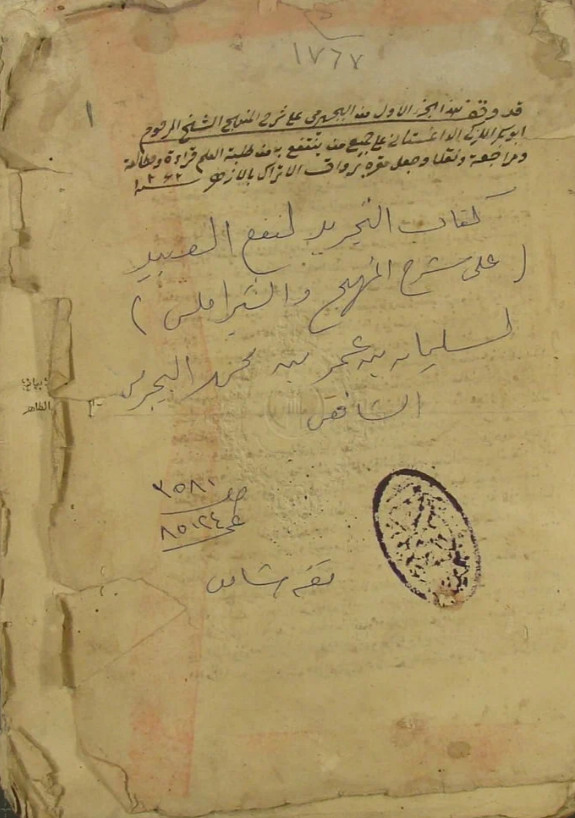 ١٧٦٧
قد وقف هذا الجزء الاول من البجيرمي على شرح المنهج الشيخ المرحوم
ابو بكر الداغستاني على جميع من ينتفع به من طلبة العلم قراءة ومطالعة
ومراجعة ونقلا وجعل مقره برواق الاتراك بالازهر سنة ١٢٦٢
كتاب التجريد لنفع العبيد
(على شرح المنهج والشبراملسي)
لسليمان بن عمر بن محمد البجيرمي
الشافعي
الظاهر
٣٥٨١
٨٥٠٢٤
فقه شافعى